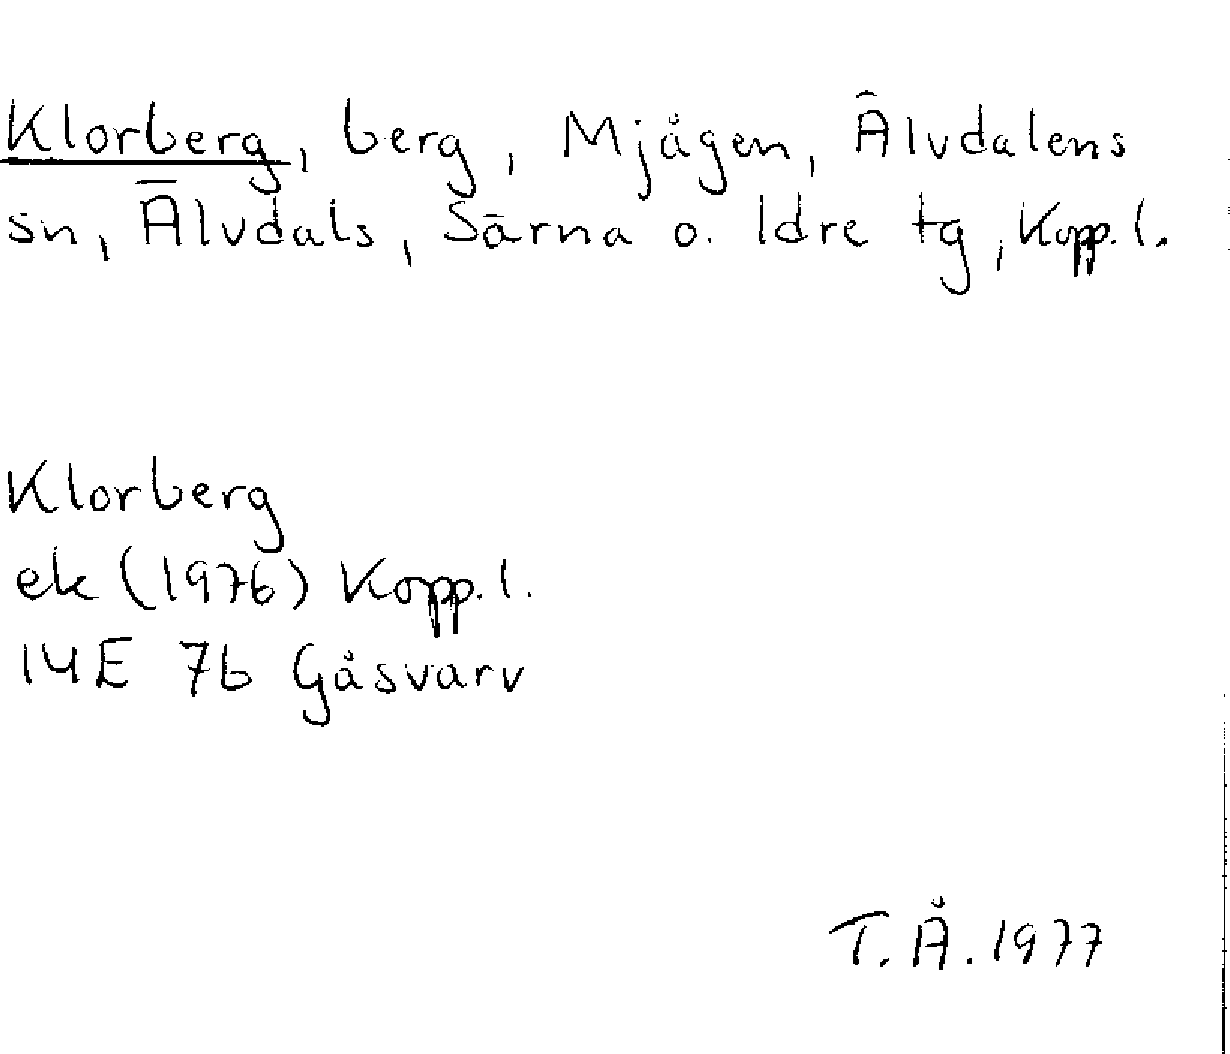 Klorberg, berg, Mjågen, Älvdalens
sn, Älvdals, Särna o. Idre tg, Kopp. l.
Klorberg
ek (1976) Kopp. l.
14E 7b Gåsvarv
T. Å. 1977